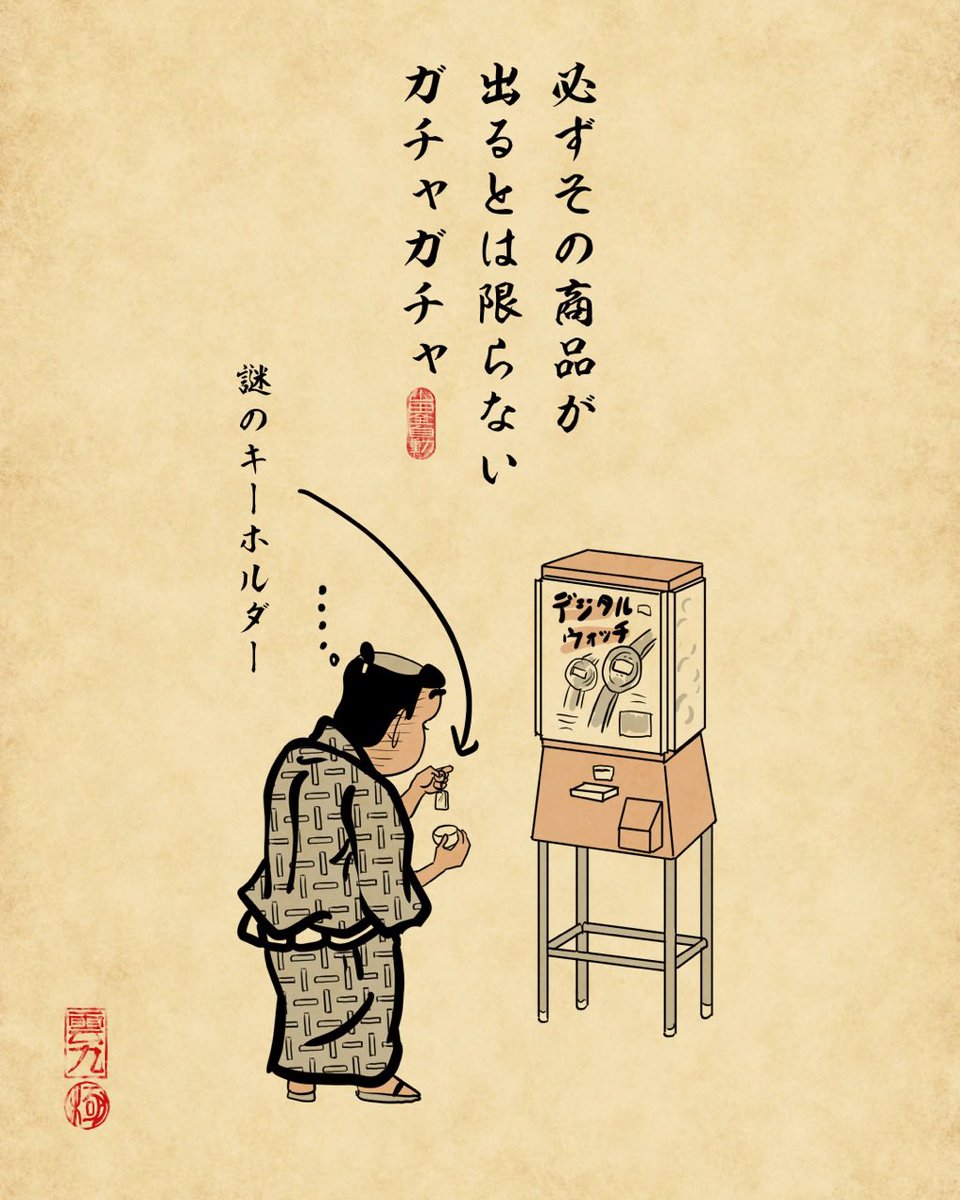 必ずその商品が
出るとは限らない
ガチャガチャ
謎のキーホルダー
デジタル
ウォッチ